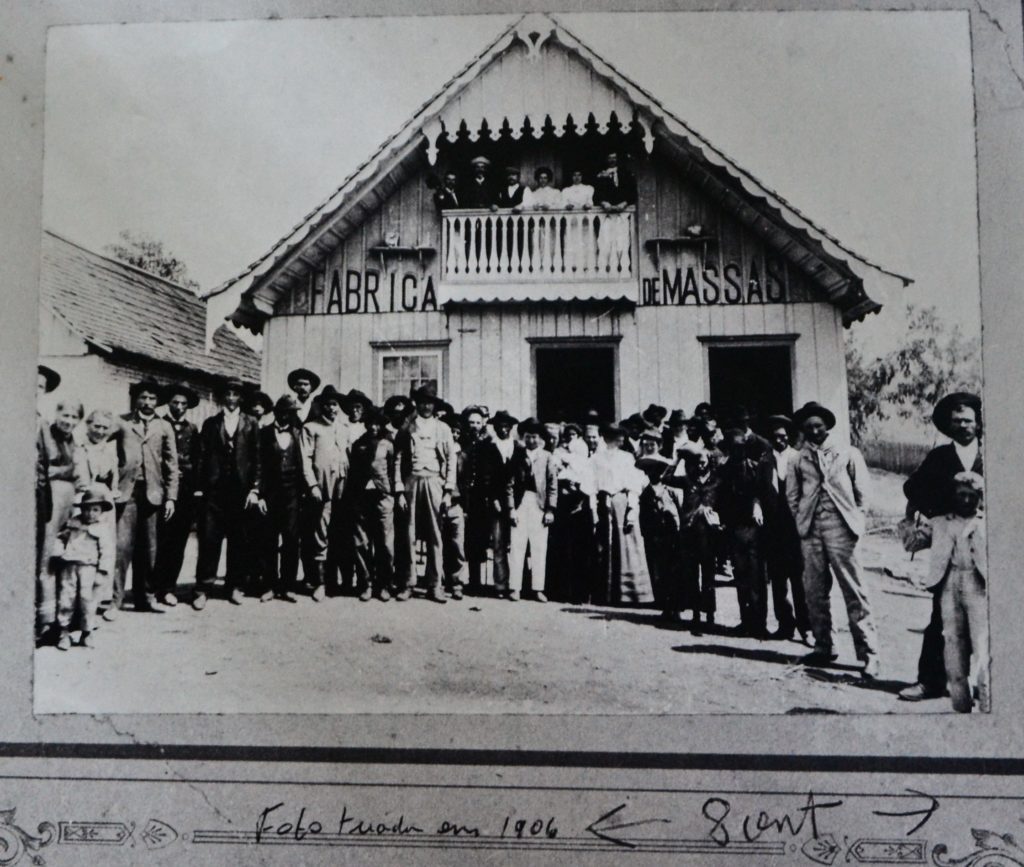 FABRICA DE MASSAS
Foto tirada em 1906 ← 8 cent →